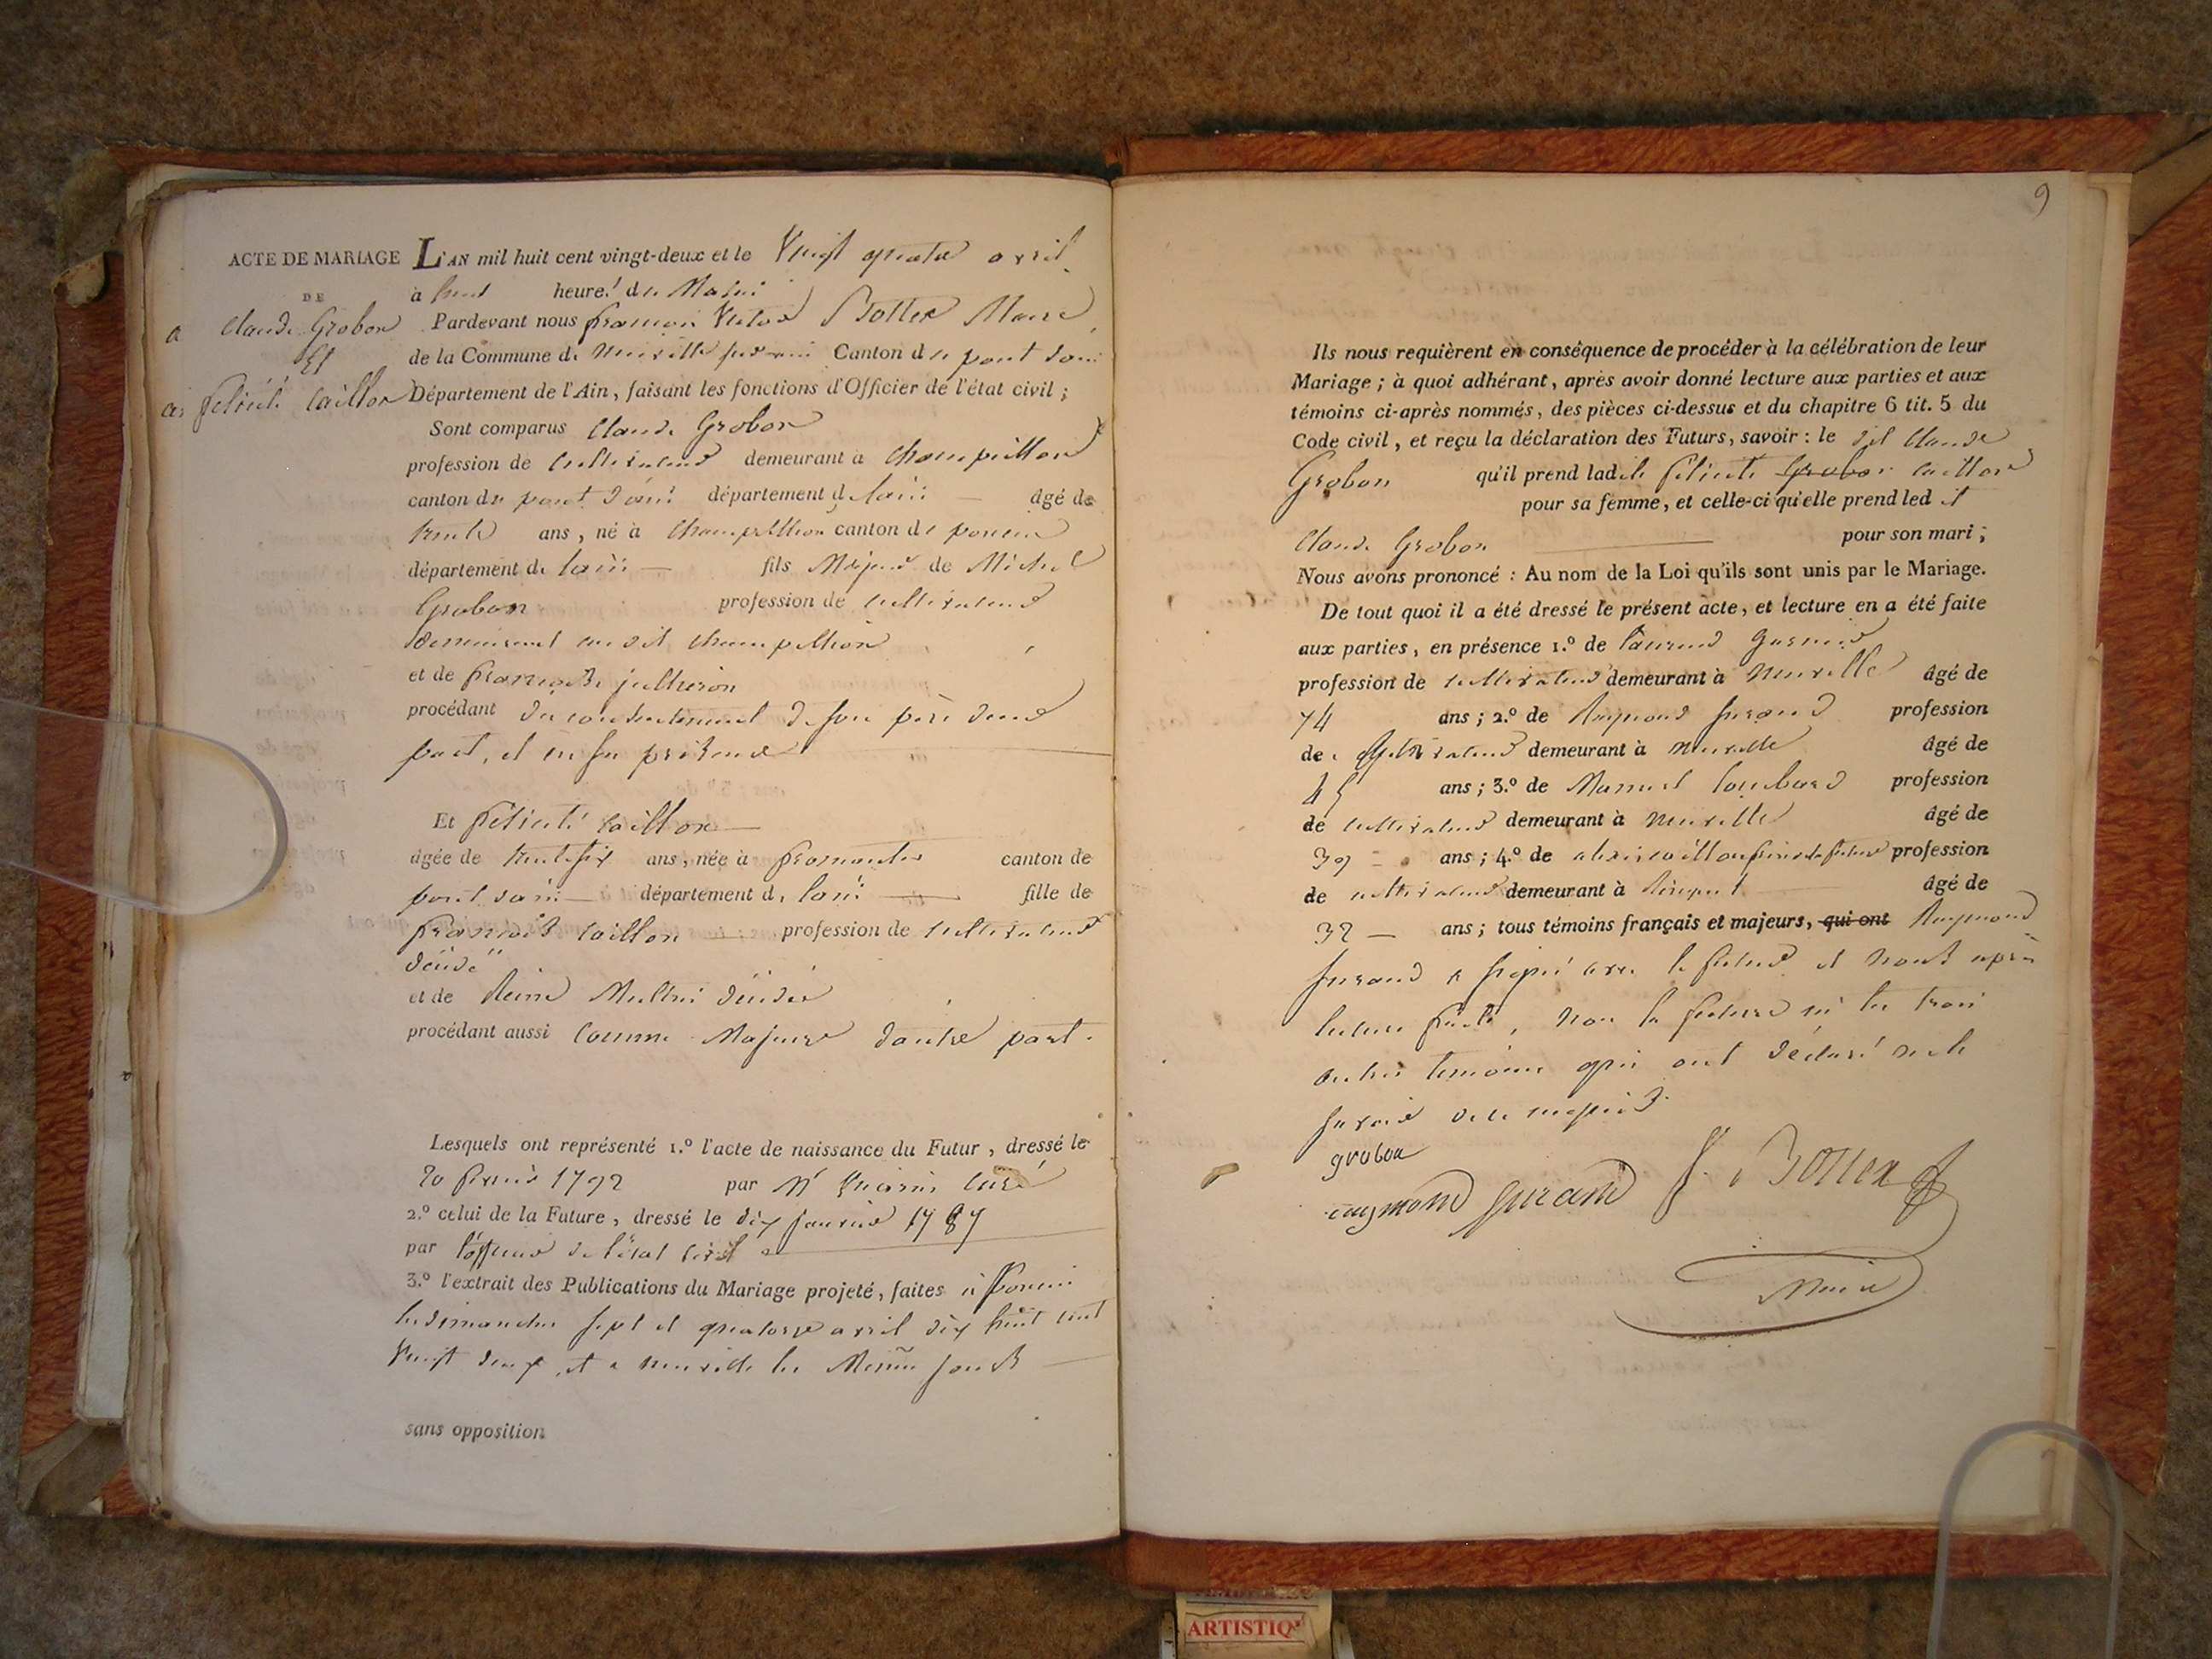 ACTE DE MARIAGE
DE
Claude Grobon
Et
félicité caillon
L'AN mil huit cent vingt-deux et le Vingt quatre avril
à huit heures du Matin
Pardevant nous françois Victor Bottex Maire
de la Commune de neuville sur ain Canton du pont dain
Département de l'Ain, faisant les fonctions d'Officier de l'état civil ;
Sont comparus Claude Grobon
profession de cultivateur demeurant à Champeillon
canton du pont d'ain département de lain âgé de
trente ans, né à Champeillon canton de poncin
département de lain fils Majeur de Michel
Grobon profession de cultivateur
demeurant au dit Champeillon
et de françoise
procédant du consentement de son père d'une
part, et en sa présence
Et félicité caillon
âgée de trente six ans, née à fromentes canton de
pont dain département de lain fille de
françois caillon profession de cultivateur
décédé
et de Reine décédée
procédant aussi comme Majeure dautre part.
Lesquels ont représenté 1.º l'acte de naissance du Futur, dressé le
20 février 1792 par Mr curé
2.º celui de la Future, dressé le dix janvier 1787
par l'officier de l'état civil
3.º l'extrait des Publications du Mariage projeté, faites à Poncin
les dimanches sept et quatorze avril dix huit cent
vingt deux, et a neuville les Meme jours
sans opposition
9
Ils nous requièrent en conséquence de procéder à la célébration de leur
Mariage ; à quoi adhérant, après avoir donné lecture aux parties et aux
témoins ci-après nommés, des pièces ci-dessus et du chapitre 6 tit. 5 du
Code civil, et reçu la déclaration des Futurs, savoir : le dit Claude
Grobon qu'il prend ladite félicité Grobon caillon
pour sa femme, et celle-ci qu'elle prend led it
Claude Grobon pour son mari ;
Nous avons prononcé : Au nom de la Loi qu'ils sont unis par le Mariage.
De tout quoi il a été dressé le présent acte, et lecture en a été faite
aux parties, en présence 1.º de Laurent
profession de cultivateur demeurant à neuville âgé de
74 ans ; 2.º de Raymond profession
de cultivateur demeurant à neuville âgé de
45 ans ; 3.º de Manuel Lombard profession
de cultivateur demeurant à neuville âgé de
39 ans ; 4.º de alexis caillon frère de la future profession
de cultivateur demeurant à âgé de
32 ans ; tous témoins français et majeurs, qui ont Raymond
a signé avec le futur et nous après
lecture faite, non la future ni les trois
autres temoins qui ont déclaré ne le
savoir de ce requis
grobon
raymond
f. v Bottex
Maire
ARTISTIQ